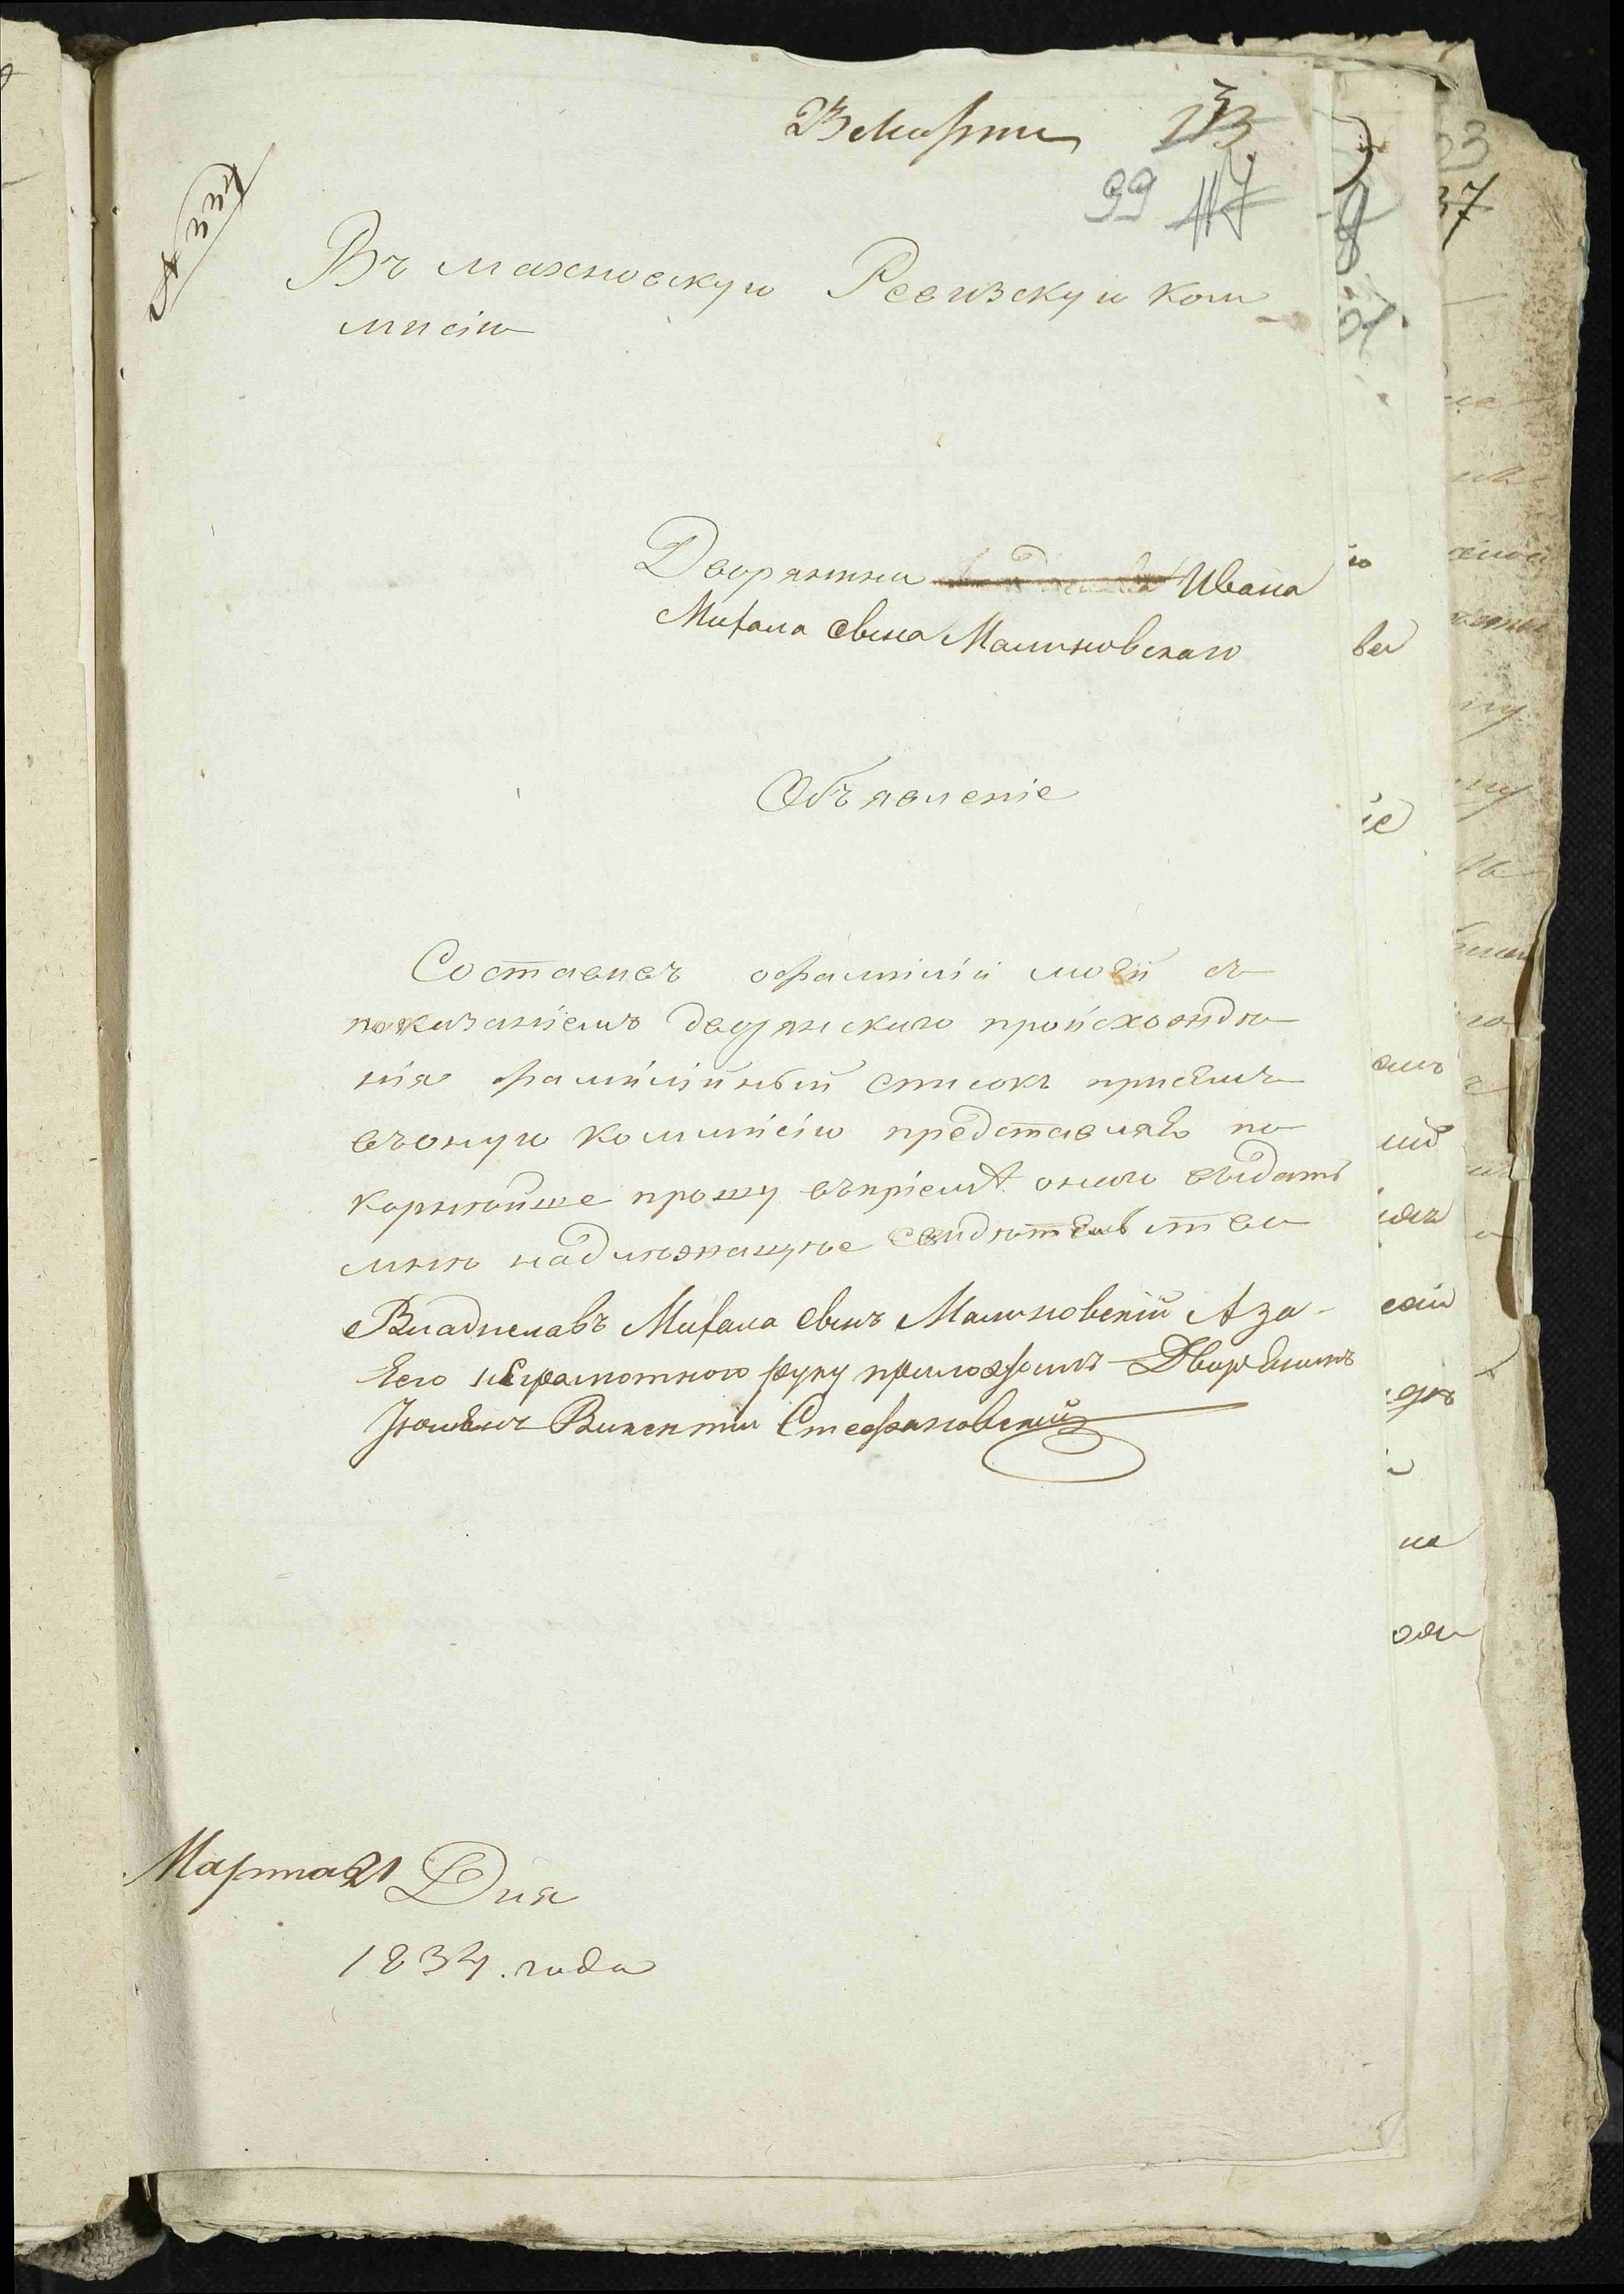 23 Марта
99
Въ махновскую Ревизскую ком
мисію
Дворянина Ивана
Михала сына Малиновскаго
Объявленіе
Составивъ офамиліи моей съ
показаніемъ дворянскаго происхожде
нія фамилійный списокъ присемъ
въоную коммисію представляю по
корнѣйше прошу въпріемѣ онаго выдать
мнѣ надлежащее свидѣтельство
Владиславъ Михала сынъ Малиновскій А за
Его неграмотного руку приложилъ Дворянинъ
Викентій Стефановскій
Марта 21 Дня
1834. года